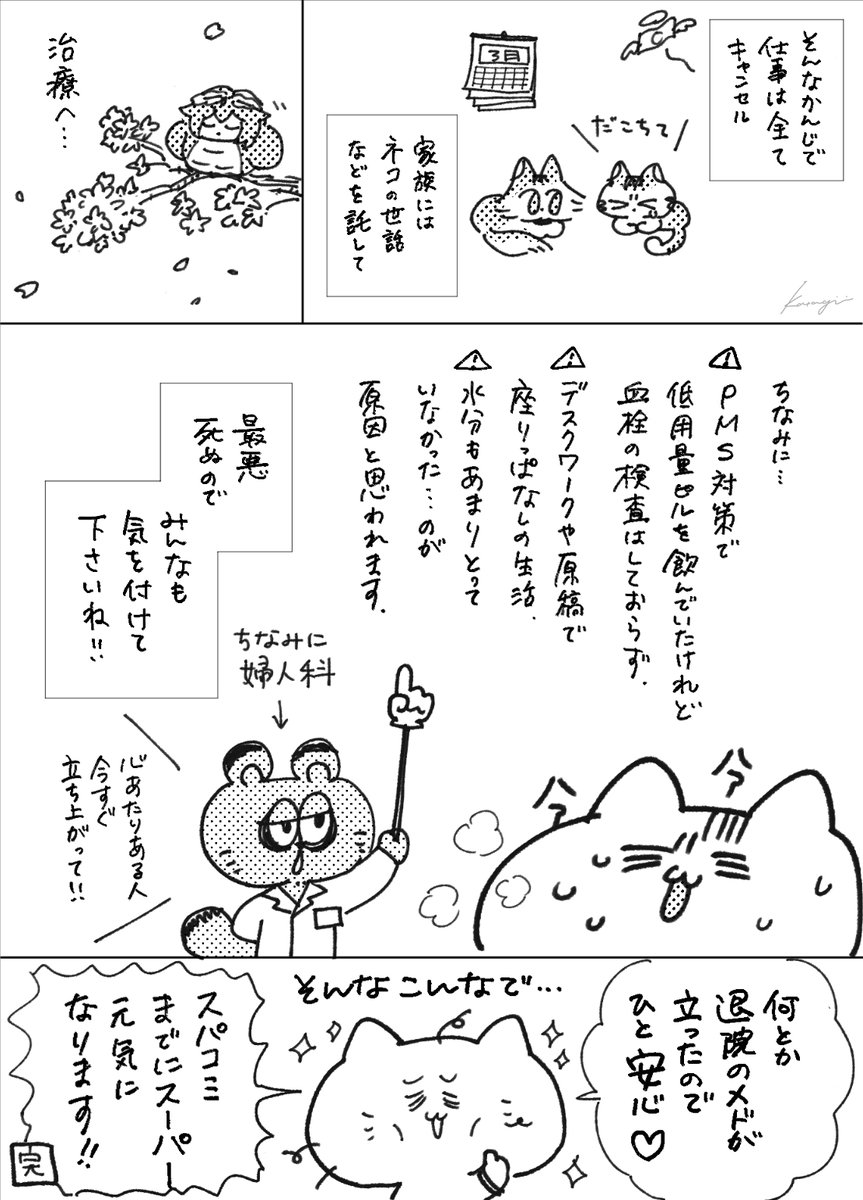 そんなかんじで
仕事は全て
キャンセル
3月
だこちて
家族には
ネコの世話
などを託して
治療へ…
ちなみに…
PMS対策で
低用量ピルを飲んでいたけれど
血栓の検査はしておらず.
デスクワークや原稿で
座りっぱなしの生活.
水分もあまりとって
いなかった…のが
原因と思われます.
最悪
死ぬので
みんなも
気を付けて
下さいね!!
ちなみに
婦人科
心あたりある人
今すぐ
立ち上がって!!
そんなこんなで…
何とか
退院のメドが
立ったので
ひと安心♡
スパコミ
までにスーパー
元気に
なります!!
完